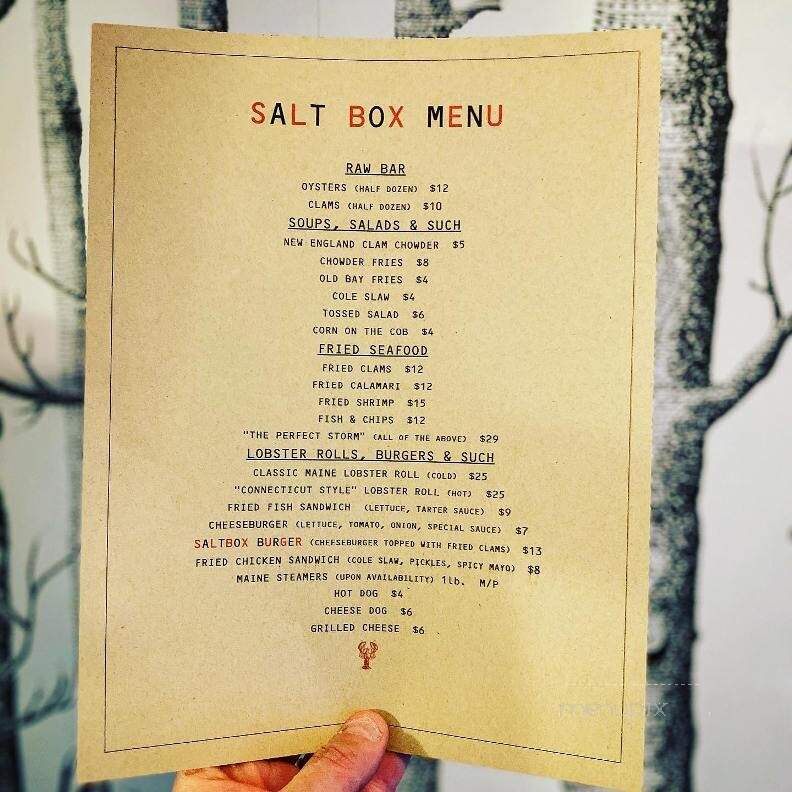 SALT BOX MENU
RAW BAR
OYSTERS (HALF DOZEN) $12
CLAMS (HALF DOZEN) $10
SOUPS, SALADS & SUCH
NEW ENGLAND CLAM CHOWDER $5
CHOWDER FRIES $8
OLD BAY FRIES $4
COLE SLAW $4
TOSSED SALAD $6
CORN ON THE COB $4
FRIED SEAFOOD
FRIED CLAMS $12
FRIED CALAMARI $12
FRIED SHRIMP $15
FISH & CHIPS $12
"THE PERFECT STORM" (ALL OF THE ABOVE) $29
LOBSTER ROLLS, BURGERS & SUCH
CLASSIC MAINE LOBSTER ROLL (COLD) $25
"CONNECTICUT STYLE" LOBSTER ROLL (HOT) $25
FRIED FISH SANDWICH (LETTUCE, TARTER SAUCE) $9
CHEESEBURGER (LETTUCE, TOMATO, ONION, SPECIAL SAUCE) $7
SALTBOX BURGER (CHEESEBURGER TOPPED WITH FRIED CLAMS) $13
FRIED CHICKEN SANDWICH (COLE SLAW, PICKLES, SPICY MAYO) $8
MAINE STEAMERS (UPON AVAILABILITY) 1lb. M/P
HOT DOG $4
CHEESE DOG $6
GRILLED CHEESE $6
menupix